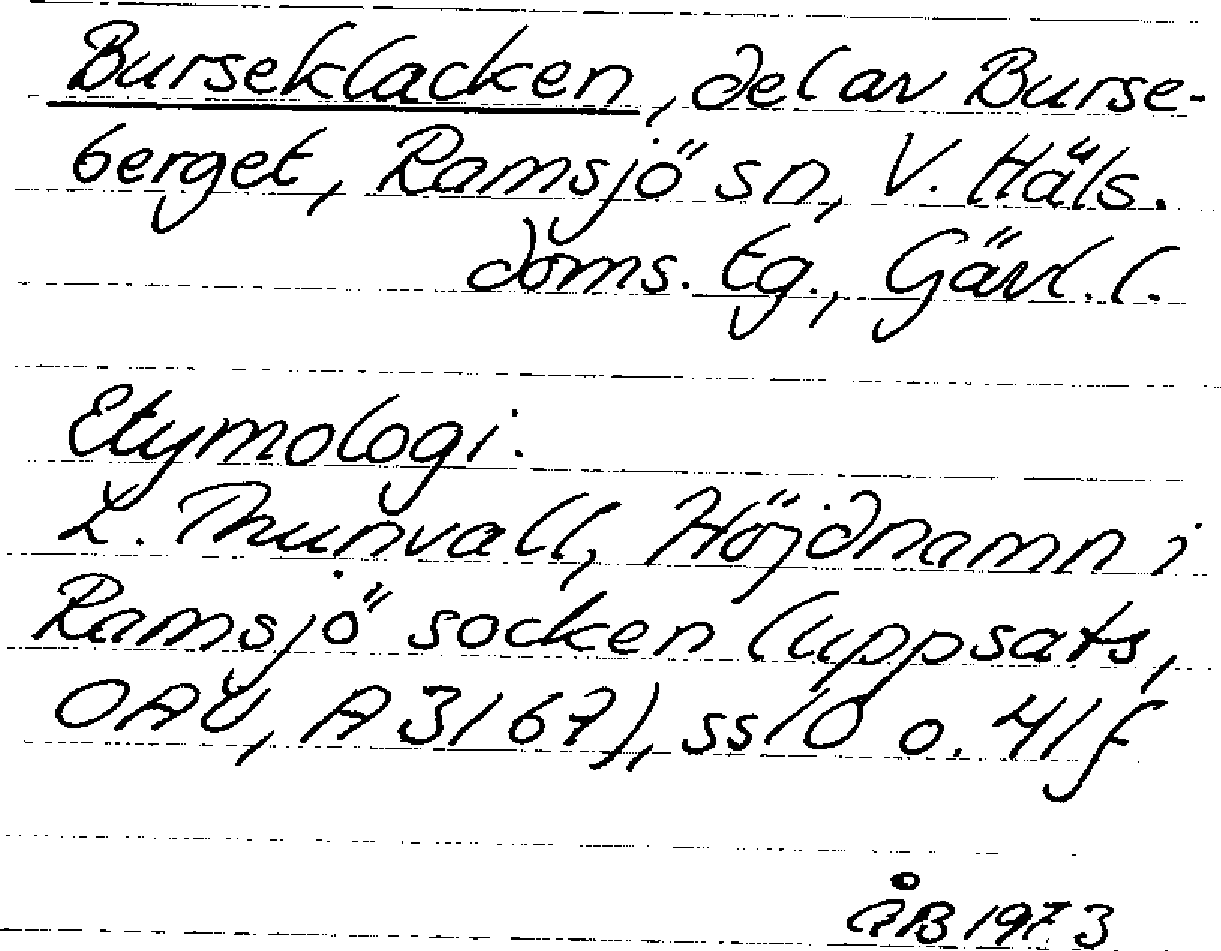 Burseklacken, del av Burse-
berget, Ramsjö sn, V. Häls.
doms. tg., Gävl. l.
Etymologi.
L. Thunvall, Höjdnamn i
Ramsjö socken (uppsats,
OAU, A 3167), ss 10 o. 41 f
ÅB 1973